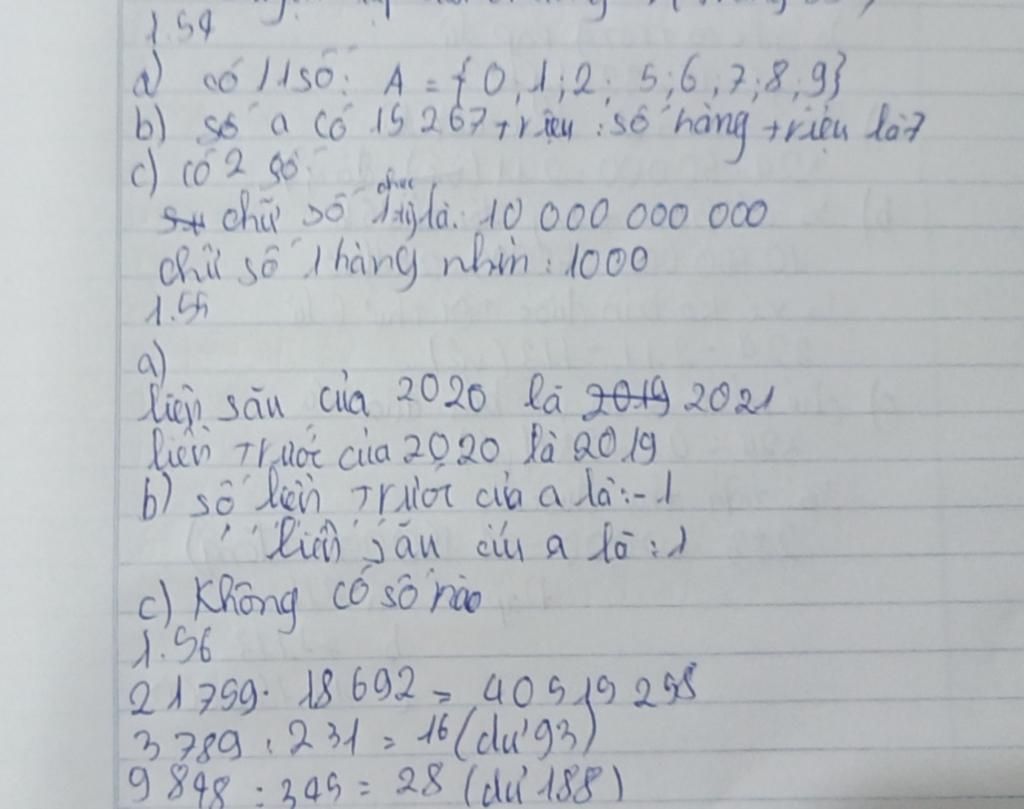 1.54
a) có 11 số: A = {0, 1; 2; 5; 6, 7; 8, 9}
b) số a có 15 267 triệu : số hàng triệu là 7
c) có 2 số:
chữ số là: 10 000 000 000
chữ số 1 hàng nhìn : 1000
1.55
a)
liền său của 2020 là 2019 2021
liền trước của 2020 là 2019
b) số liền trước của a là: -1
liền său của a là : 1
c) Không có số nào
1.56
21759 . 18 692 =
3 789 : 231 = 16 (dư 93)
9 848 : 345 = 28 (dư 188)